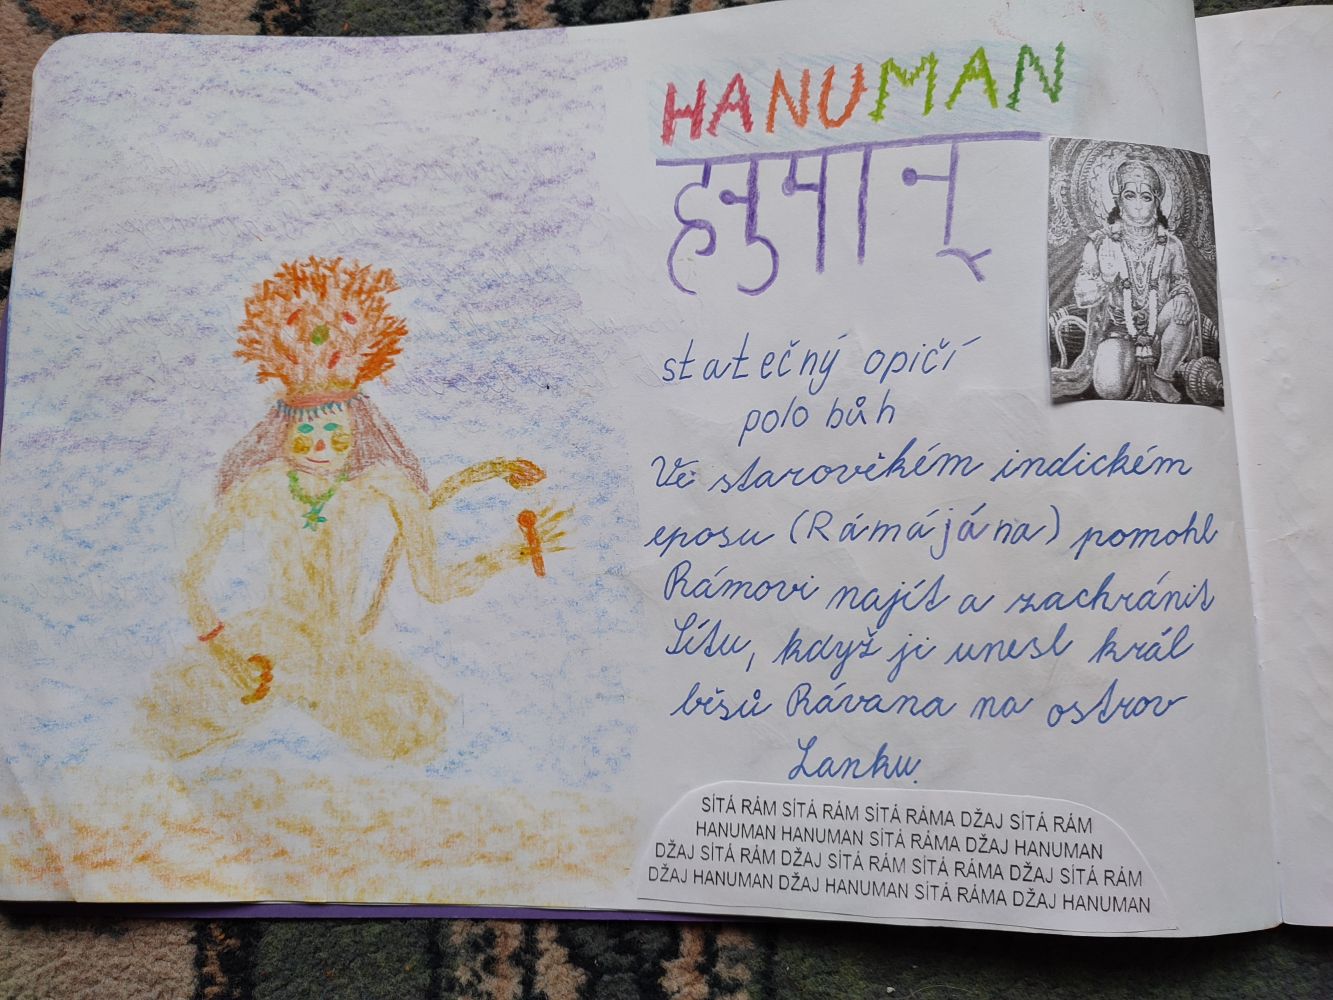 HANUMAN
हनुमान्
statečný opičí
polo bůh
Ve starověkém indickém
eposu (Rámájána) pomohl
Rámovi najít a zachránit
Sítu, když ji unesl král
běsů Rávana na ostrov
Lanku.
SÍTÁ RÁM SÍTÁ RÁM SÍTÁ RÁMA DŽAJ SÍTÁ RÁM
HANUMAN HANUMAN SÍTÁ RÁMA DŽAJ HANUMAN
DŽAJ SÍTÁ RÁM DŽAJ SÍTÁ RÁM SÍTÁ RÁMA DŽAJ SÍTÁ RÁM
DŽAJ HANUMAN DŽAJ HANUMAN SÍTÁ RÁMA DŽAJ HANUMAN